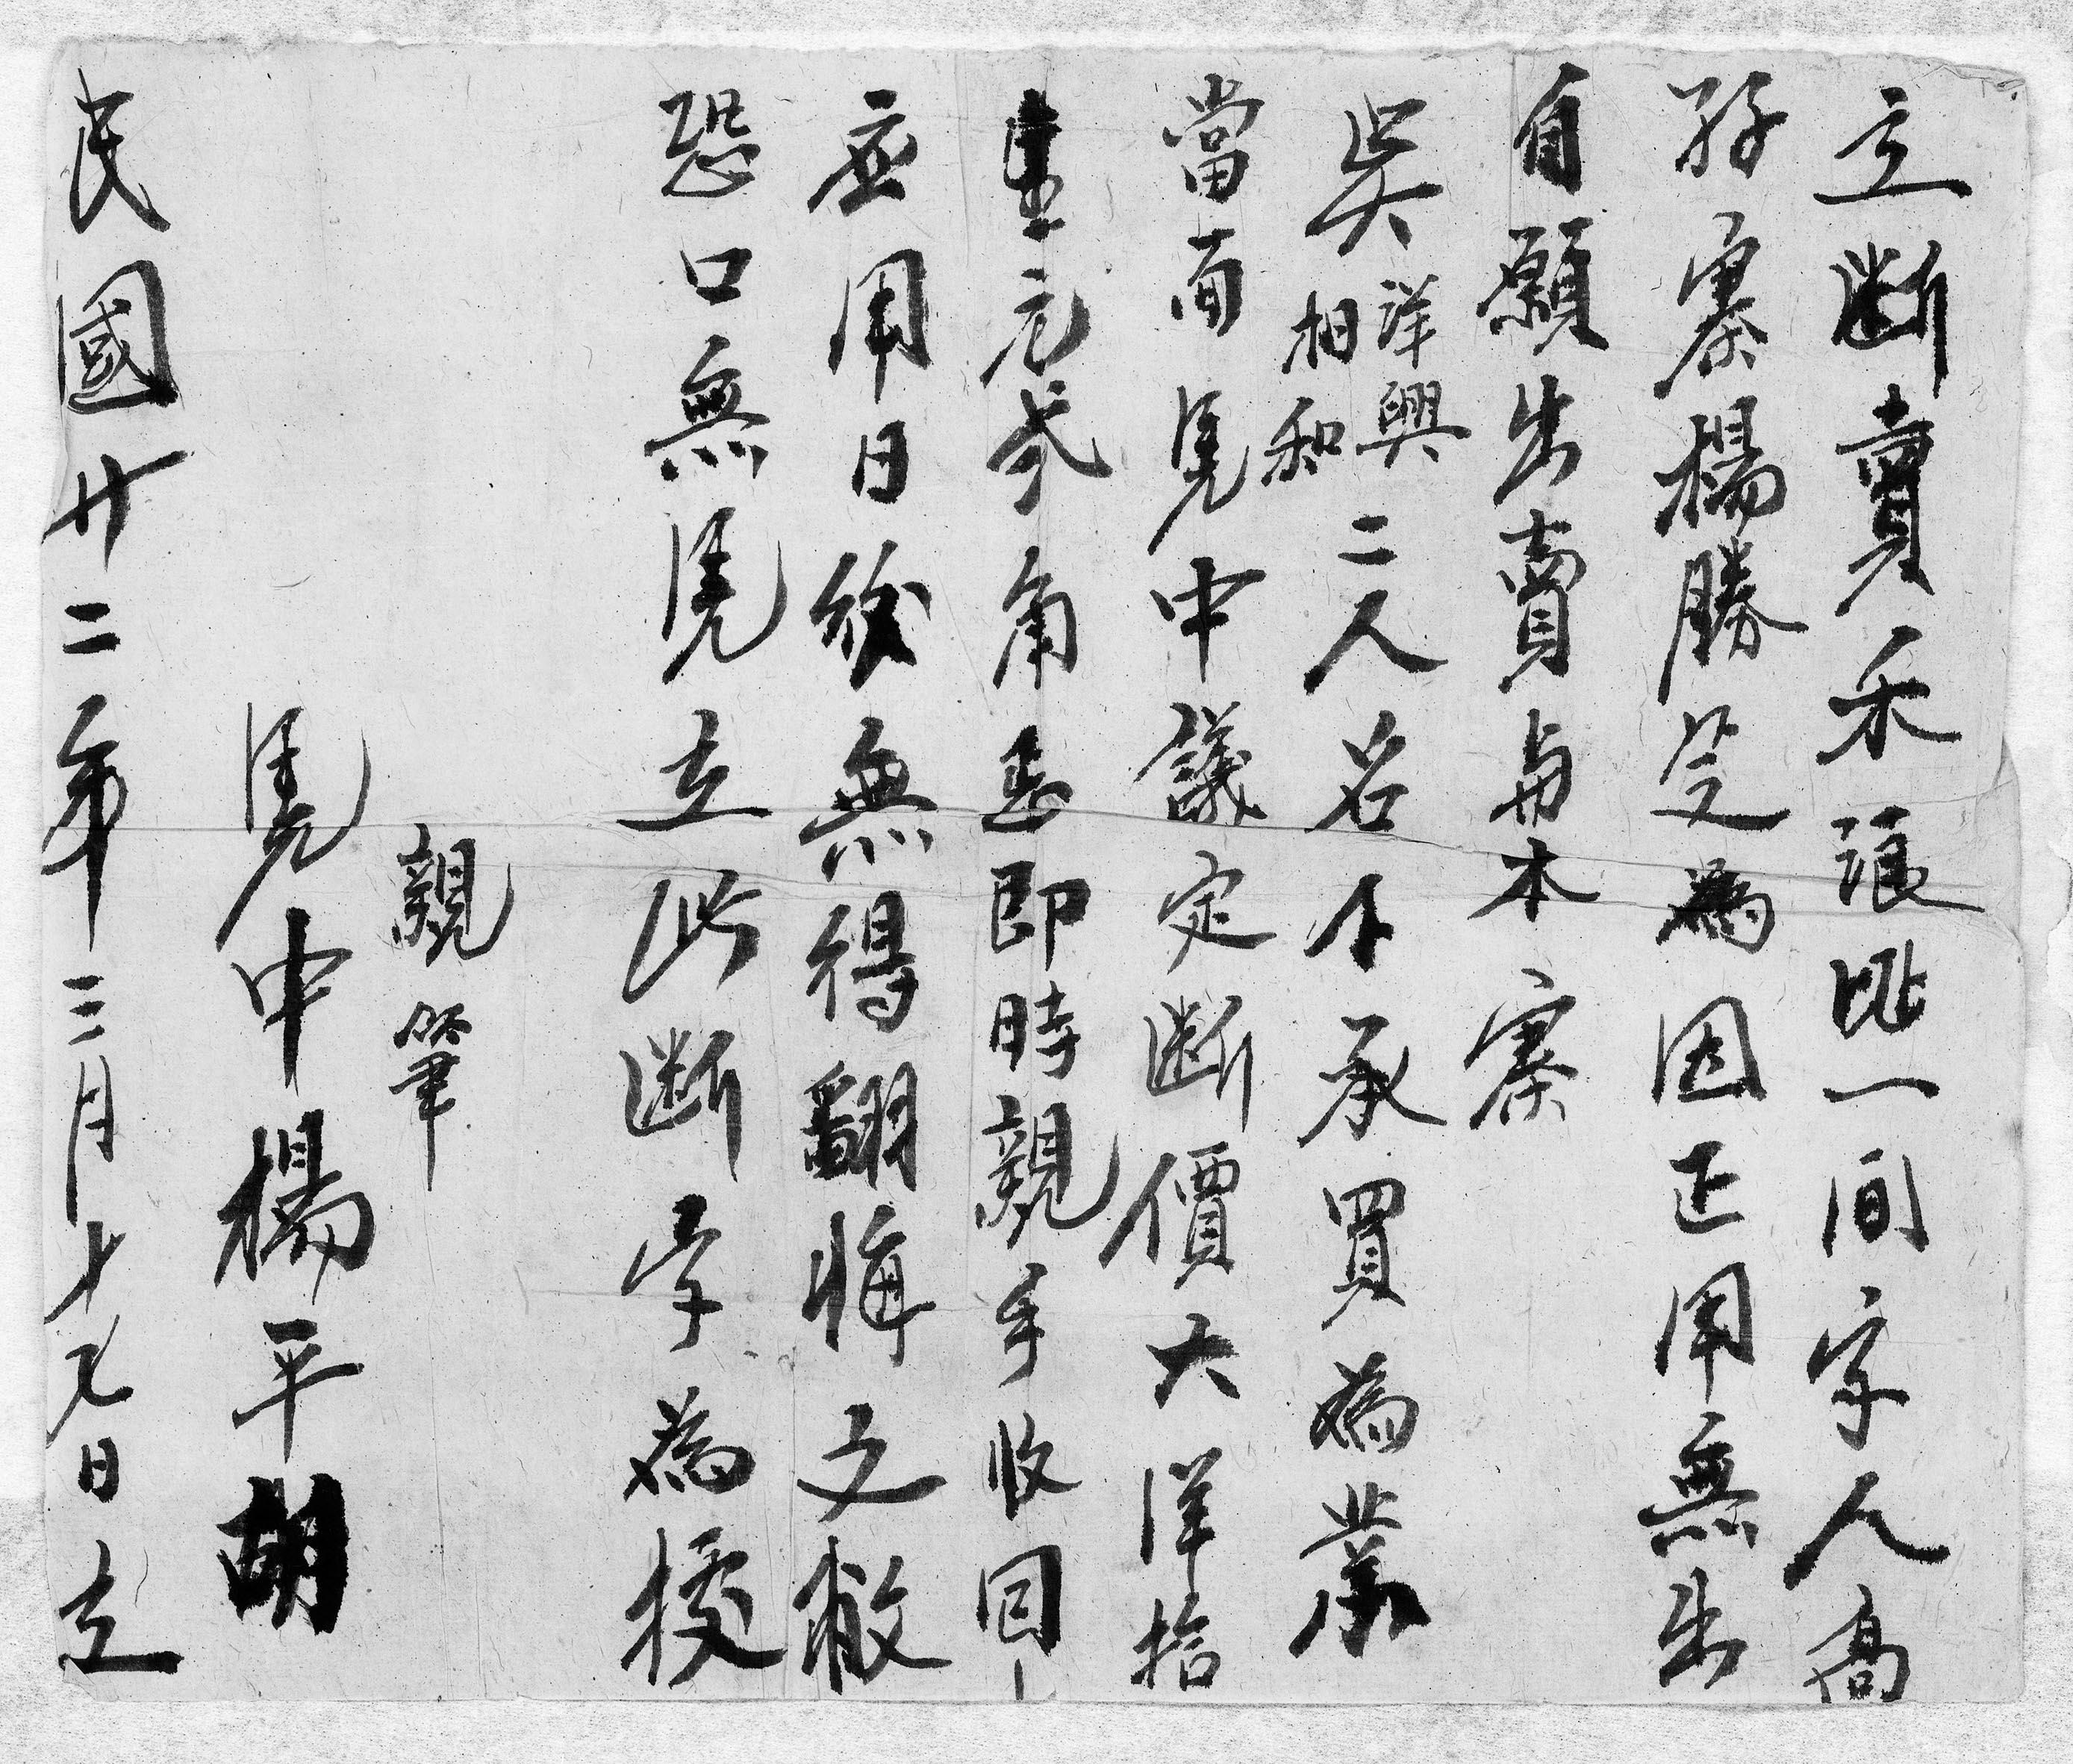 立斷賣禾㫰毗一间字人高
孖寨楊勝芝為因正用無出
自願出賣與本寨
吳詳興相和二人名下承買為業
當面凴中議定斷價大洋拾
元弍角正即時親手收回
应用日後無得翻悔之敝
恐口無凴立此斷字為援
親筆
凴中楊平胡
民國廿二年三月十九日立